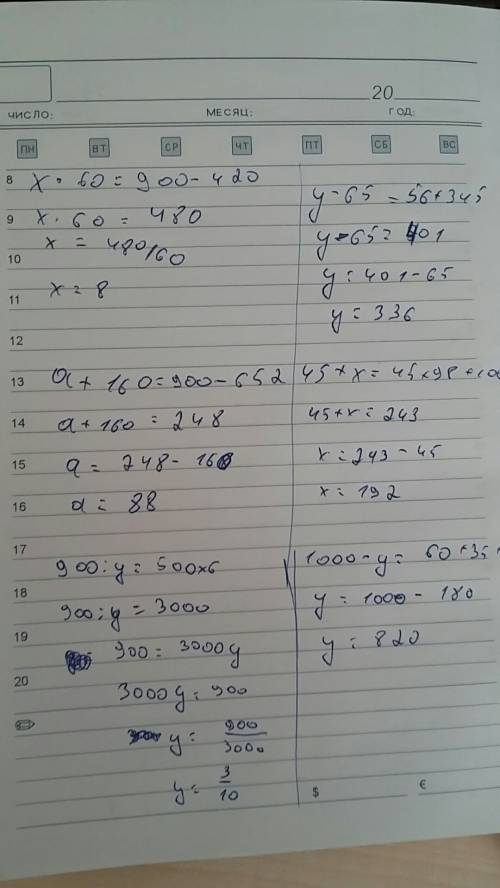 20
ЧИСЛО: МЕСЯЦ: ГОД:
ПН ВТ СР ЧТ ПТ СБ ВС
8 x · 60 = 900 - 420
9 x · 60 = 480
10 x = 480/60
11 x = 8
12
y - 65 = 56 + 345
y - 65 = 401
y = 401 - 65
y = 336
13 a + 160 = 900 - 652
14 a + 160 = 248
15 a = 248 - 160
16 a = 88
45 + x = 45 + 98 + 100
45 + x = 243
x = 243 - 45
x = 192
17
900 : y = 500x6
18
900 : y = 3000
19
900 = 3000y
20
3000y = 900
y = 900/3000
y = 3/10
1000 - y = 60 + 35
y = 1000 - 180
y = 820
$ €